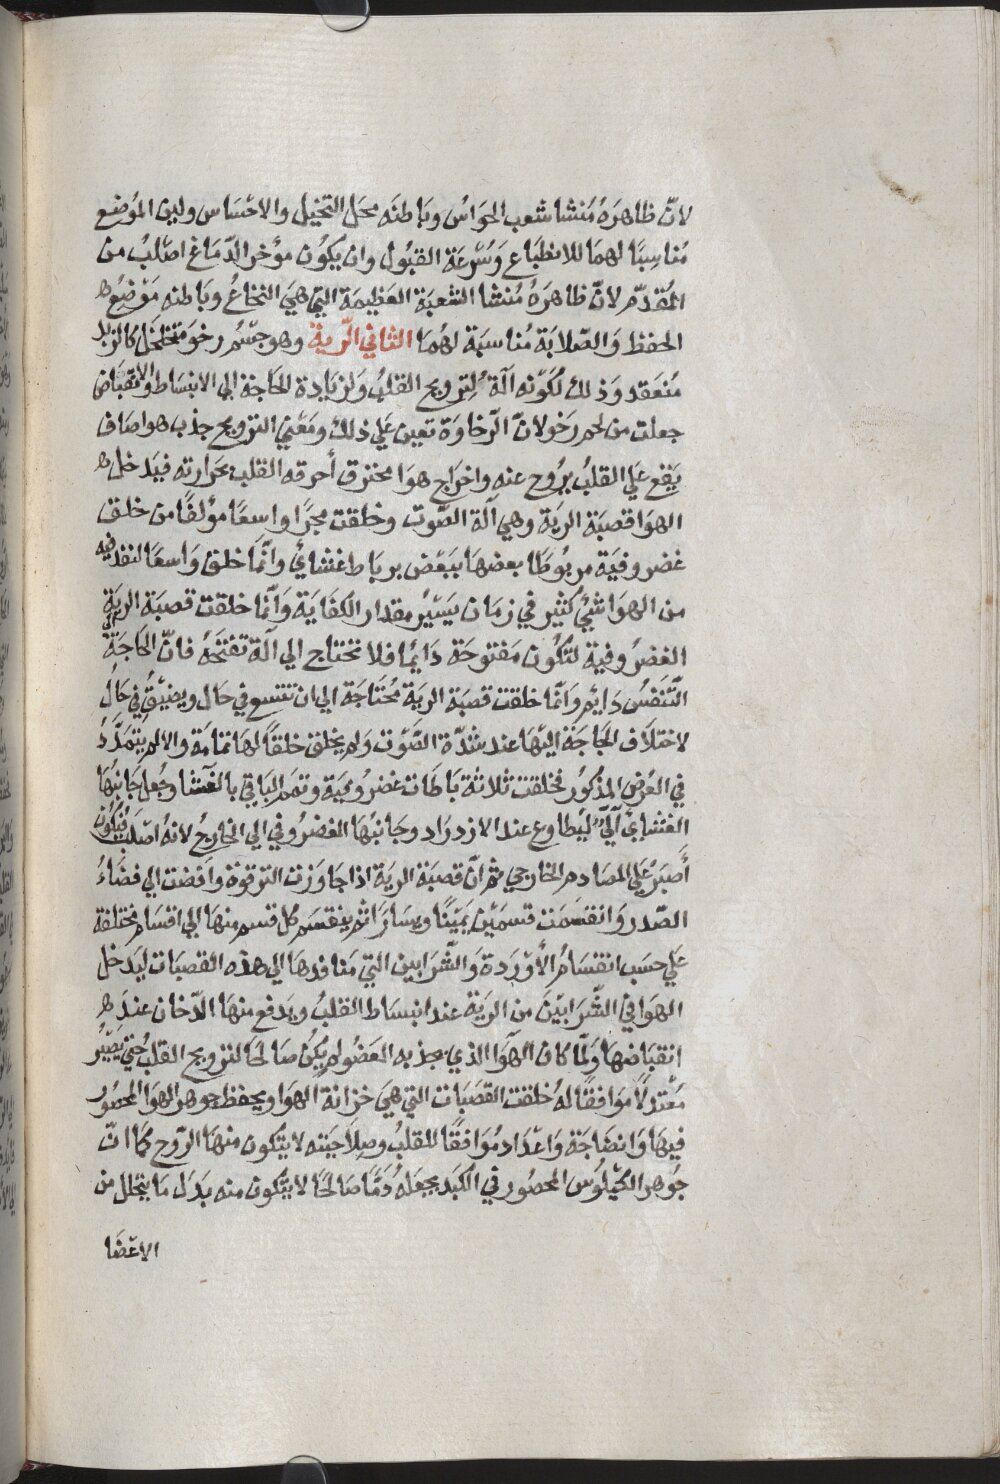 لانّ ظاهرَهُ مُنشا شعب الحوَاسُ وبَاطنَه محَل التخيل والاحْسَاس ولين المُوضع
مُناسِبًا لهمَا للانطبَاع وَسُرْعَة القبُول وان يكوُن مؤخر الدّمَاغ اصْلبُ من
المُقدّم لانّ ظاهرَهُ مُنشا الشعبَة العَظيمَة التي هيَ النخاعُ وبَاطنه مَوْضوُع
الحفظ وَالصّلابَة مُناسبَة لهُمَا الثاني الّرية وهو جسْمُ رخو متخلخل كالزبد
مُنعَقد وَذلك لكوْنه آلَة لِترويح القلبُ ولزيَادة الحَاجة الي الانبسَاط والانقبَاض
جعلت من لحم رَخو لانّ الرّخاوَة تعين عَلي ذلك ومَعْني الترويح جذب هوا صَاف
يَقع عَلي القلبُ يروح عنه واخرَاج هوَا محترق أحرقه القلب بحَرارته فيَدخل
الهوَا قصبَة الريَة وهي آلة الصّوت وخلقت مجرًا واسعًا مؤلفًا من خلق
غضروفيَة مربُوطًا بعضهَا ببَعْض برباط غشائي وانّمَا خلق وَاسعًا لنفذ فيه
من الهوَا شيُ كثير في زمَان يسَيْرُ مقدار الكفايَة وَانّما خلقت قصبَة الريَة
الغضرُوفيَة لتكوُن مَفتوحَة دَائمًا فلا تحتاج الي آلة تفتحَهُ فانّ الحَاجَة الي
التّنَفسُ دَايْم وَانّما خلقت قصبَة الريَة مُحتَاجَة الي ان تتسع في حَال ويضيْقُ في حَال
لاختلاف الحَاجَة اليْهَا عند شدّة الصَّوْت وَلم يخلق خلقًا لهَا تمامَة والا لم يتمَدّدُ
في العُرْض المذكوُر فخلقت ثلاثة بَاطَات غضرُوفيَة وتممَ البَاقي بالغشا وجُعل جَانبُهَا
الغشاءِيُ اليّ ليطاوع عند الازدرَاد وجَانبُهَا الغضرُوفي الي الخارجُ لانهُ اصْلبَ فيكوُن
أصَبَرُ عَلي المصَادم الخارجي ثم انّ قصبَة الريَة اذا جَاوَزت الترقوَة وَافضت الي فضَاءُ
الصّدر وَانقسَمَت قسمَيْن يَمينًا ويسَارًا ثم ينقسَم كل قسم منهَا الي اقسَام مختلفة
عَلي حسَب انقسَامُ الأوْرَدة وَالشّرَايين التي مَنافدهَا الي هذه القصبَات ليَدخل
الهوَا في الشّرَايّين من الريَة عند انبسَاط القلبُ ويدَفع منهَا الدّخان عندَ
انقبَاضهَا وَلمّا كان الهَوَا الذي يجذبه العضُو لم يكنْ صَالحًا لترويح القلبُ حتي يَصيْرُ
مُعْتدلاً مُوَافقًا له خُلقت القصَبَات التي هيَ خزانة الهوَا ويحفظ جوهر الهوَا المحصُور
فيهَا وَانضاجَة وَاعْدَاد مُوَافقًا للقلبُ وصلَاحيَته لا يتكوُن منهَا الرّوح كمَا انّ
جوُهر الكيْلوُس المحصُور في الكبَد يجعَلهُ دَمًا صَالحًا لا يتكوُن منه بدَل مَا يتحلل من
الاعْضَا